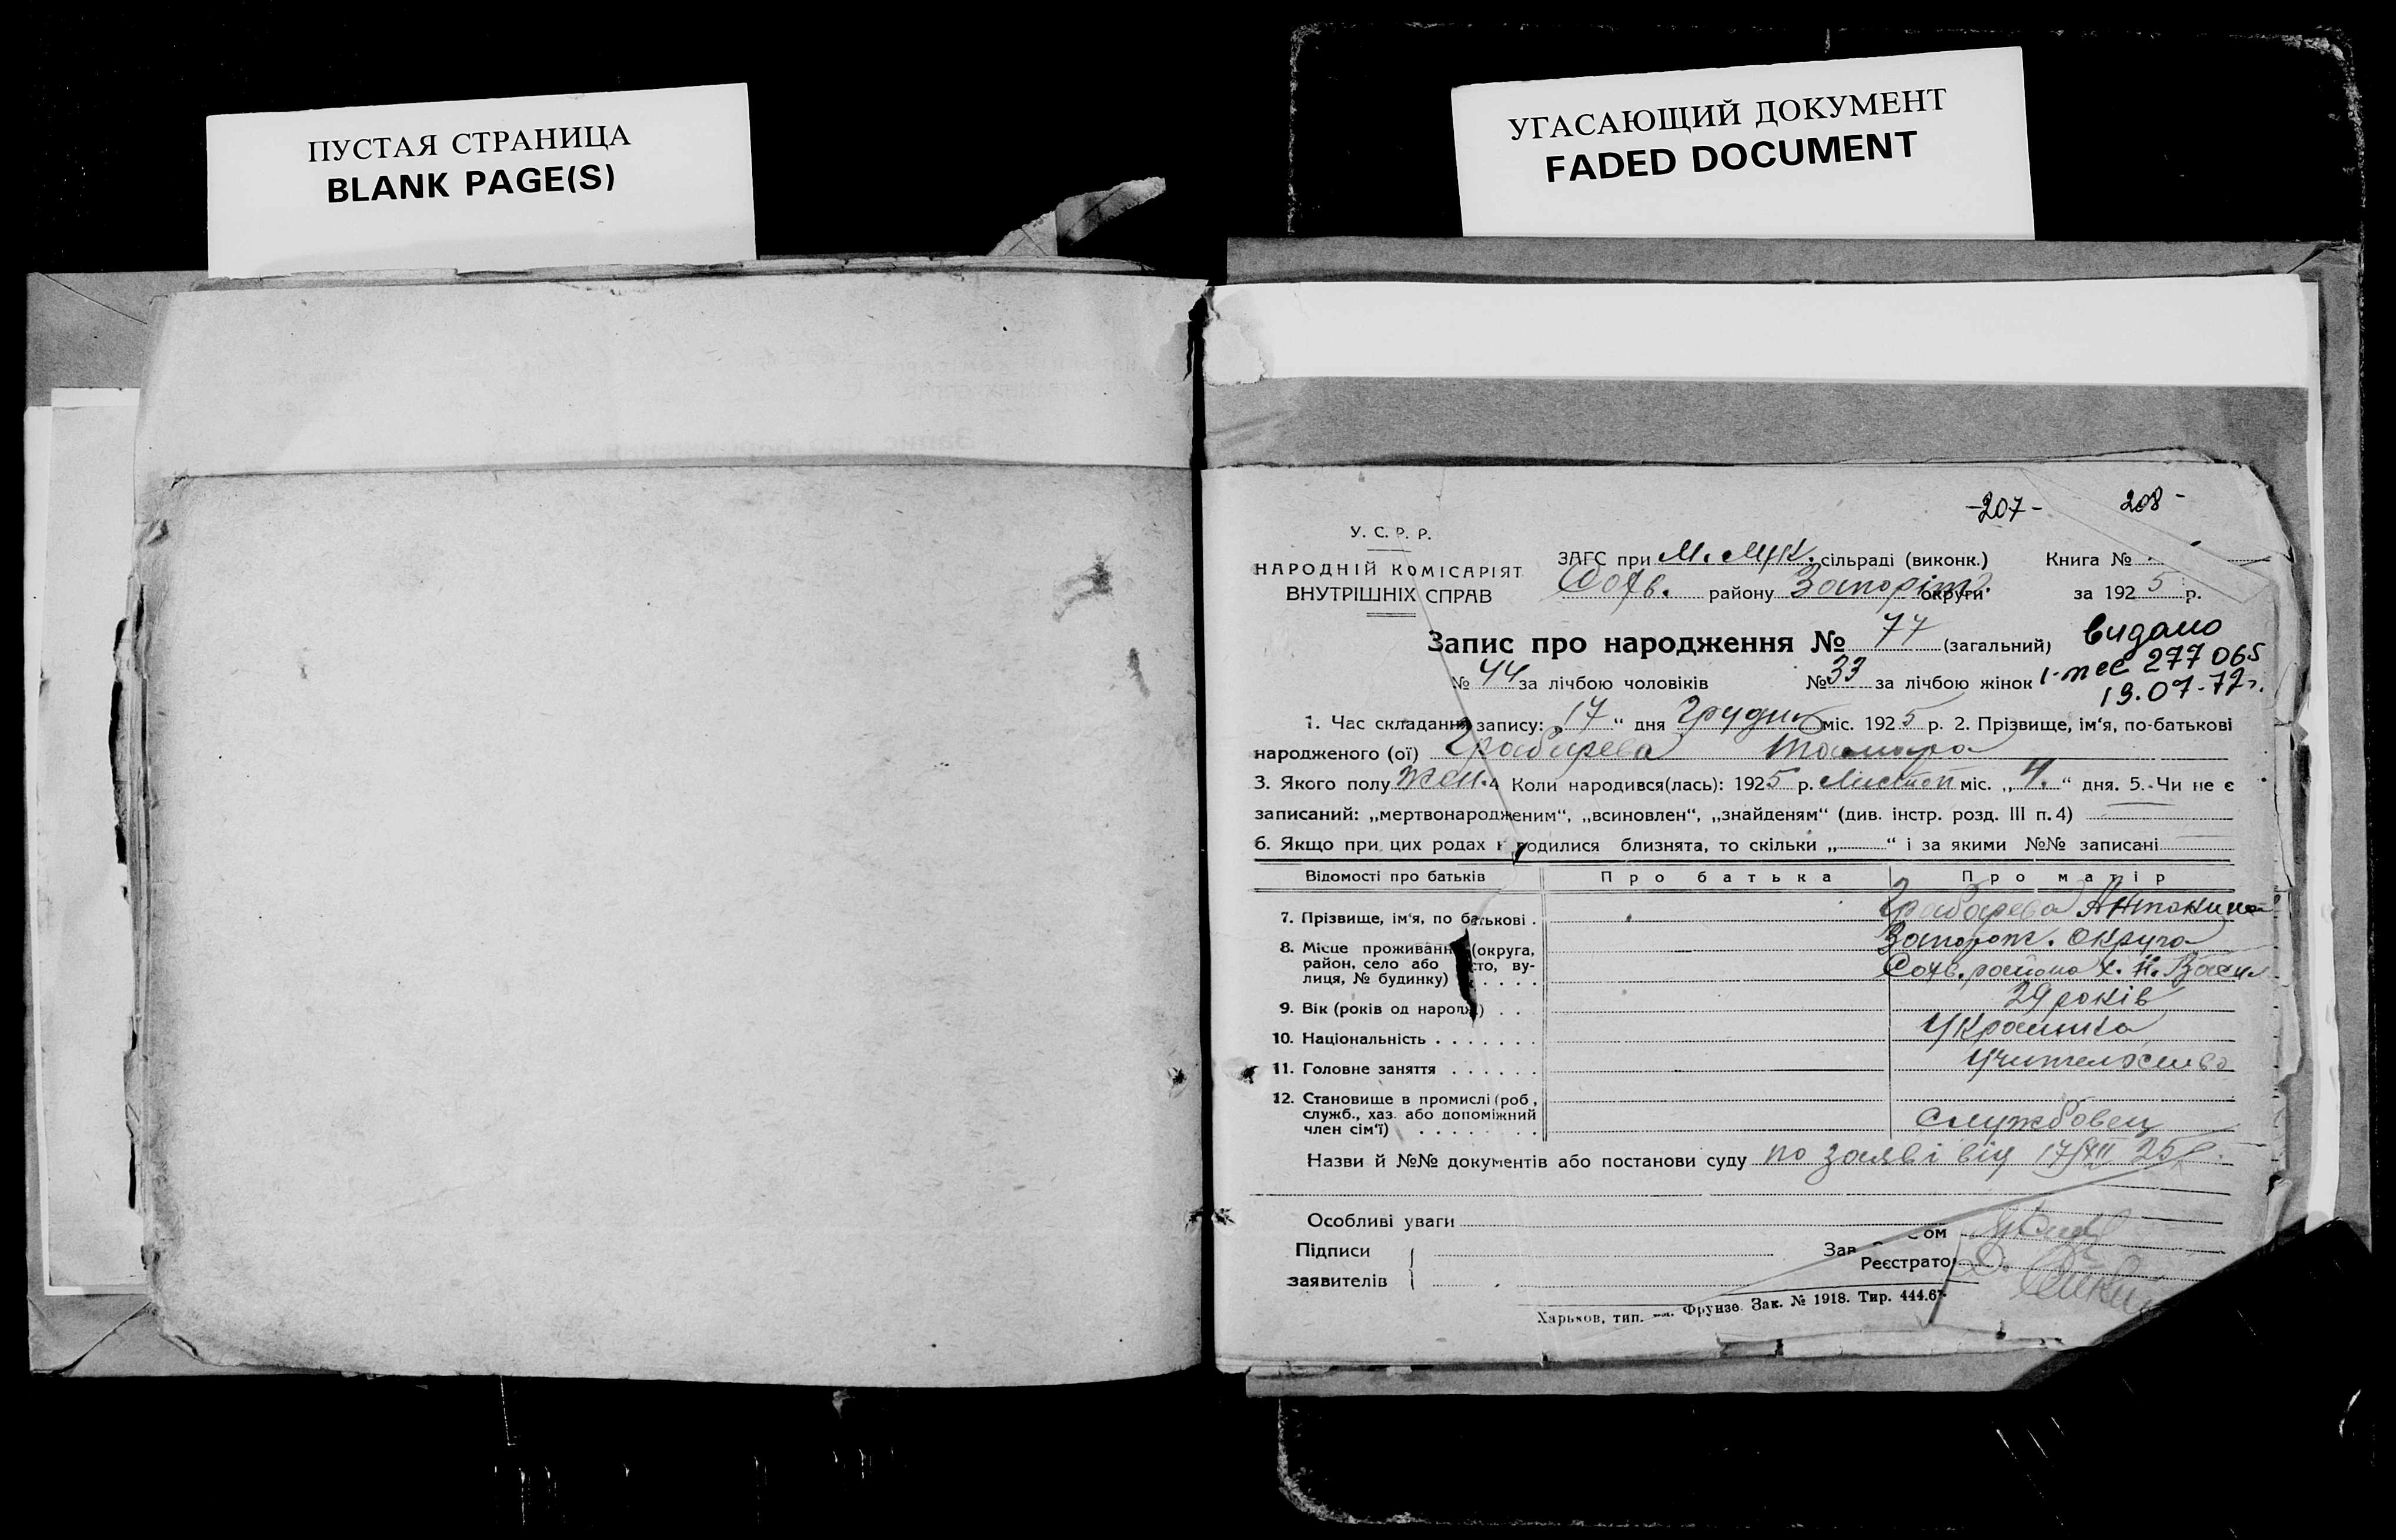 ПУСТАЯ СТРАНИЦА
BLANK PAGE(S)
УГАСАЮЩИЙ ДОКУМЕНТ
FADED DOCUMENT
-207- 208-
У. С. Р. Р.
НАРОДНІЙ КОМІСАРІЯТ
ВНУТРІШНІХ СПРАВ
ЗАГС при М. Мук. сільраді (виконк.) Книга №
Софв. району Запоріж. округи за 1925 р.
Запис про народження № 77 (загальний)
видано
277 065
19.07.77г.
№ 44 за лічбою чоловіків № 33 за лічбою жінок
1. Час складання запису: „17“ дня Грудня міс. 1925 р. 2. Прізвище, ім'я, по-батькові
народженого (ої) Грабарева Тамара
3. Якого полу жен. 4 Коли народився(лась): 1925 р. Листоп міс. „4.“ дня. 5. Чи не є
записаний: „мертвонародженим“, „всиновлен“, „знайденям“ (див. інстр. розд. III п. 4)
6. Якщо при цих родах родилися близнята, то скільки „ “ і за якими №№ записані
Відомості про батьків Про батька Про матір
7. Прізвище, ім'я, по батькові . Грабарева Антонина
8. Місце проживання (округа, Запорож. округа
район, село або місто, ву- Софв. района х. Н. Васил
лиця, № будинку) . . . .
9. Вік (років од народж.) . . 29 років
10. Національність . . . . . . . Українка
11. Головне заняття . . . . . . Учительство
12. Становище в промислі (роб.,
служб., хаз. або допоміжний
член сім'ї) . . . . . . . Службовец
Назви й №№ документів або постанови суду по заяві від 17/XII 25р.
Особливі уваги
Підписи
заявителів
Зав ом
Реєстратор
Харьков, тип. Фрунзе. Зак. № 1918. Тир. 444.67